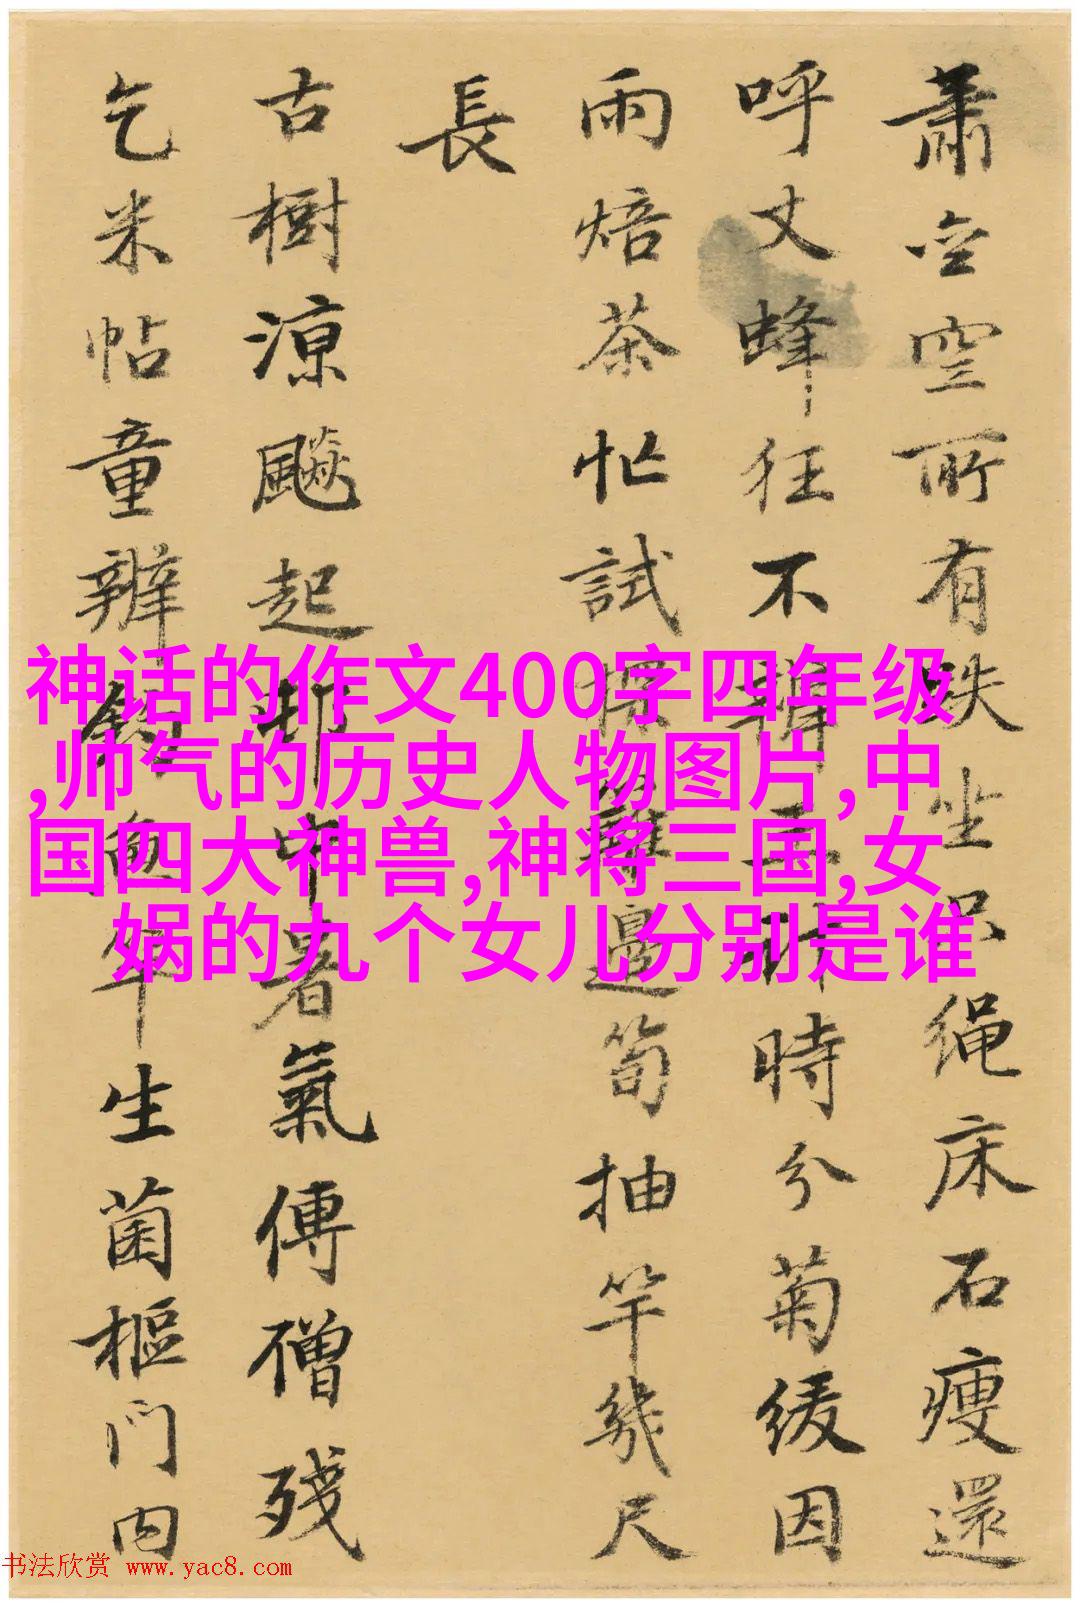 神话的作文400字四年级
,帅气的历史人物图片,中
国四大神兽,神将三国,女
娲的九个女儿分别是谁
肅空所有趺坐只绳床石瘦還
呼丈蜂狂不揖王時分菊緩因
雨焙茶忙試探籬邊筍抽竿幾尺
長
古樹涼飈起邨中暑氣傳僧殘
乞米帖童辨釣魚竿生菌樞門内
书法欣赏 www.yac8.com